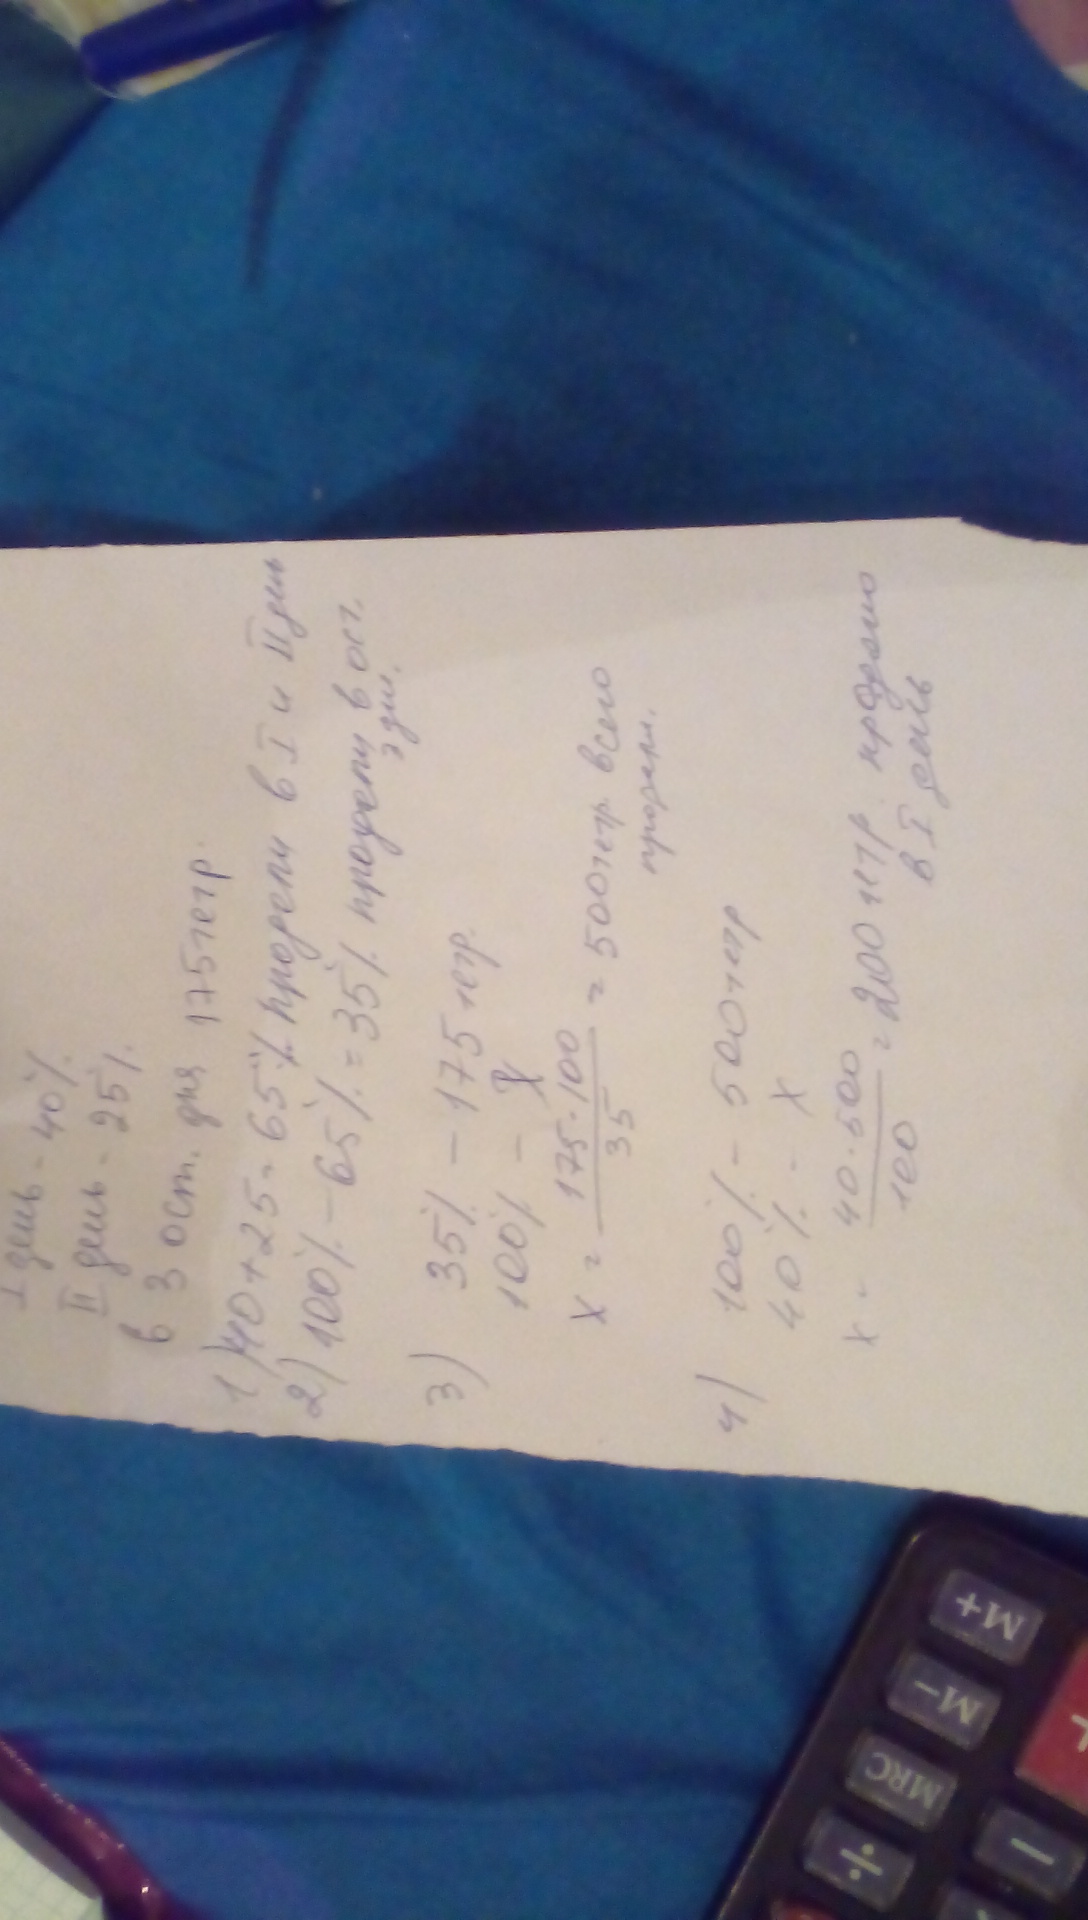 I день - 40%
II день - 25%.
в 3 ост. дня 175 тетр.
1) 40+25=65% продали в I и II день
2) 100% - 65% = 35% продали в ост.
3 дня.
3) 35% - 175 тетр.
100% - X
X = 175·100 / 35 = 500 тетр всего
продали.
4) 100% - 500 тетр
40% - X
X = 40·500 / 100 = 200 тетр. продано
в I день
M+
M−
MRC
÷
−